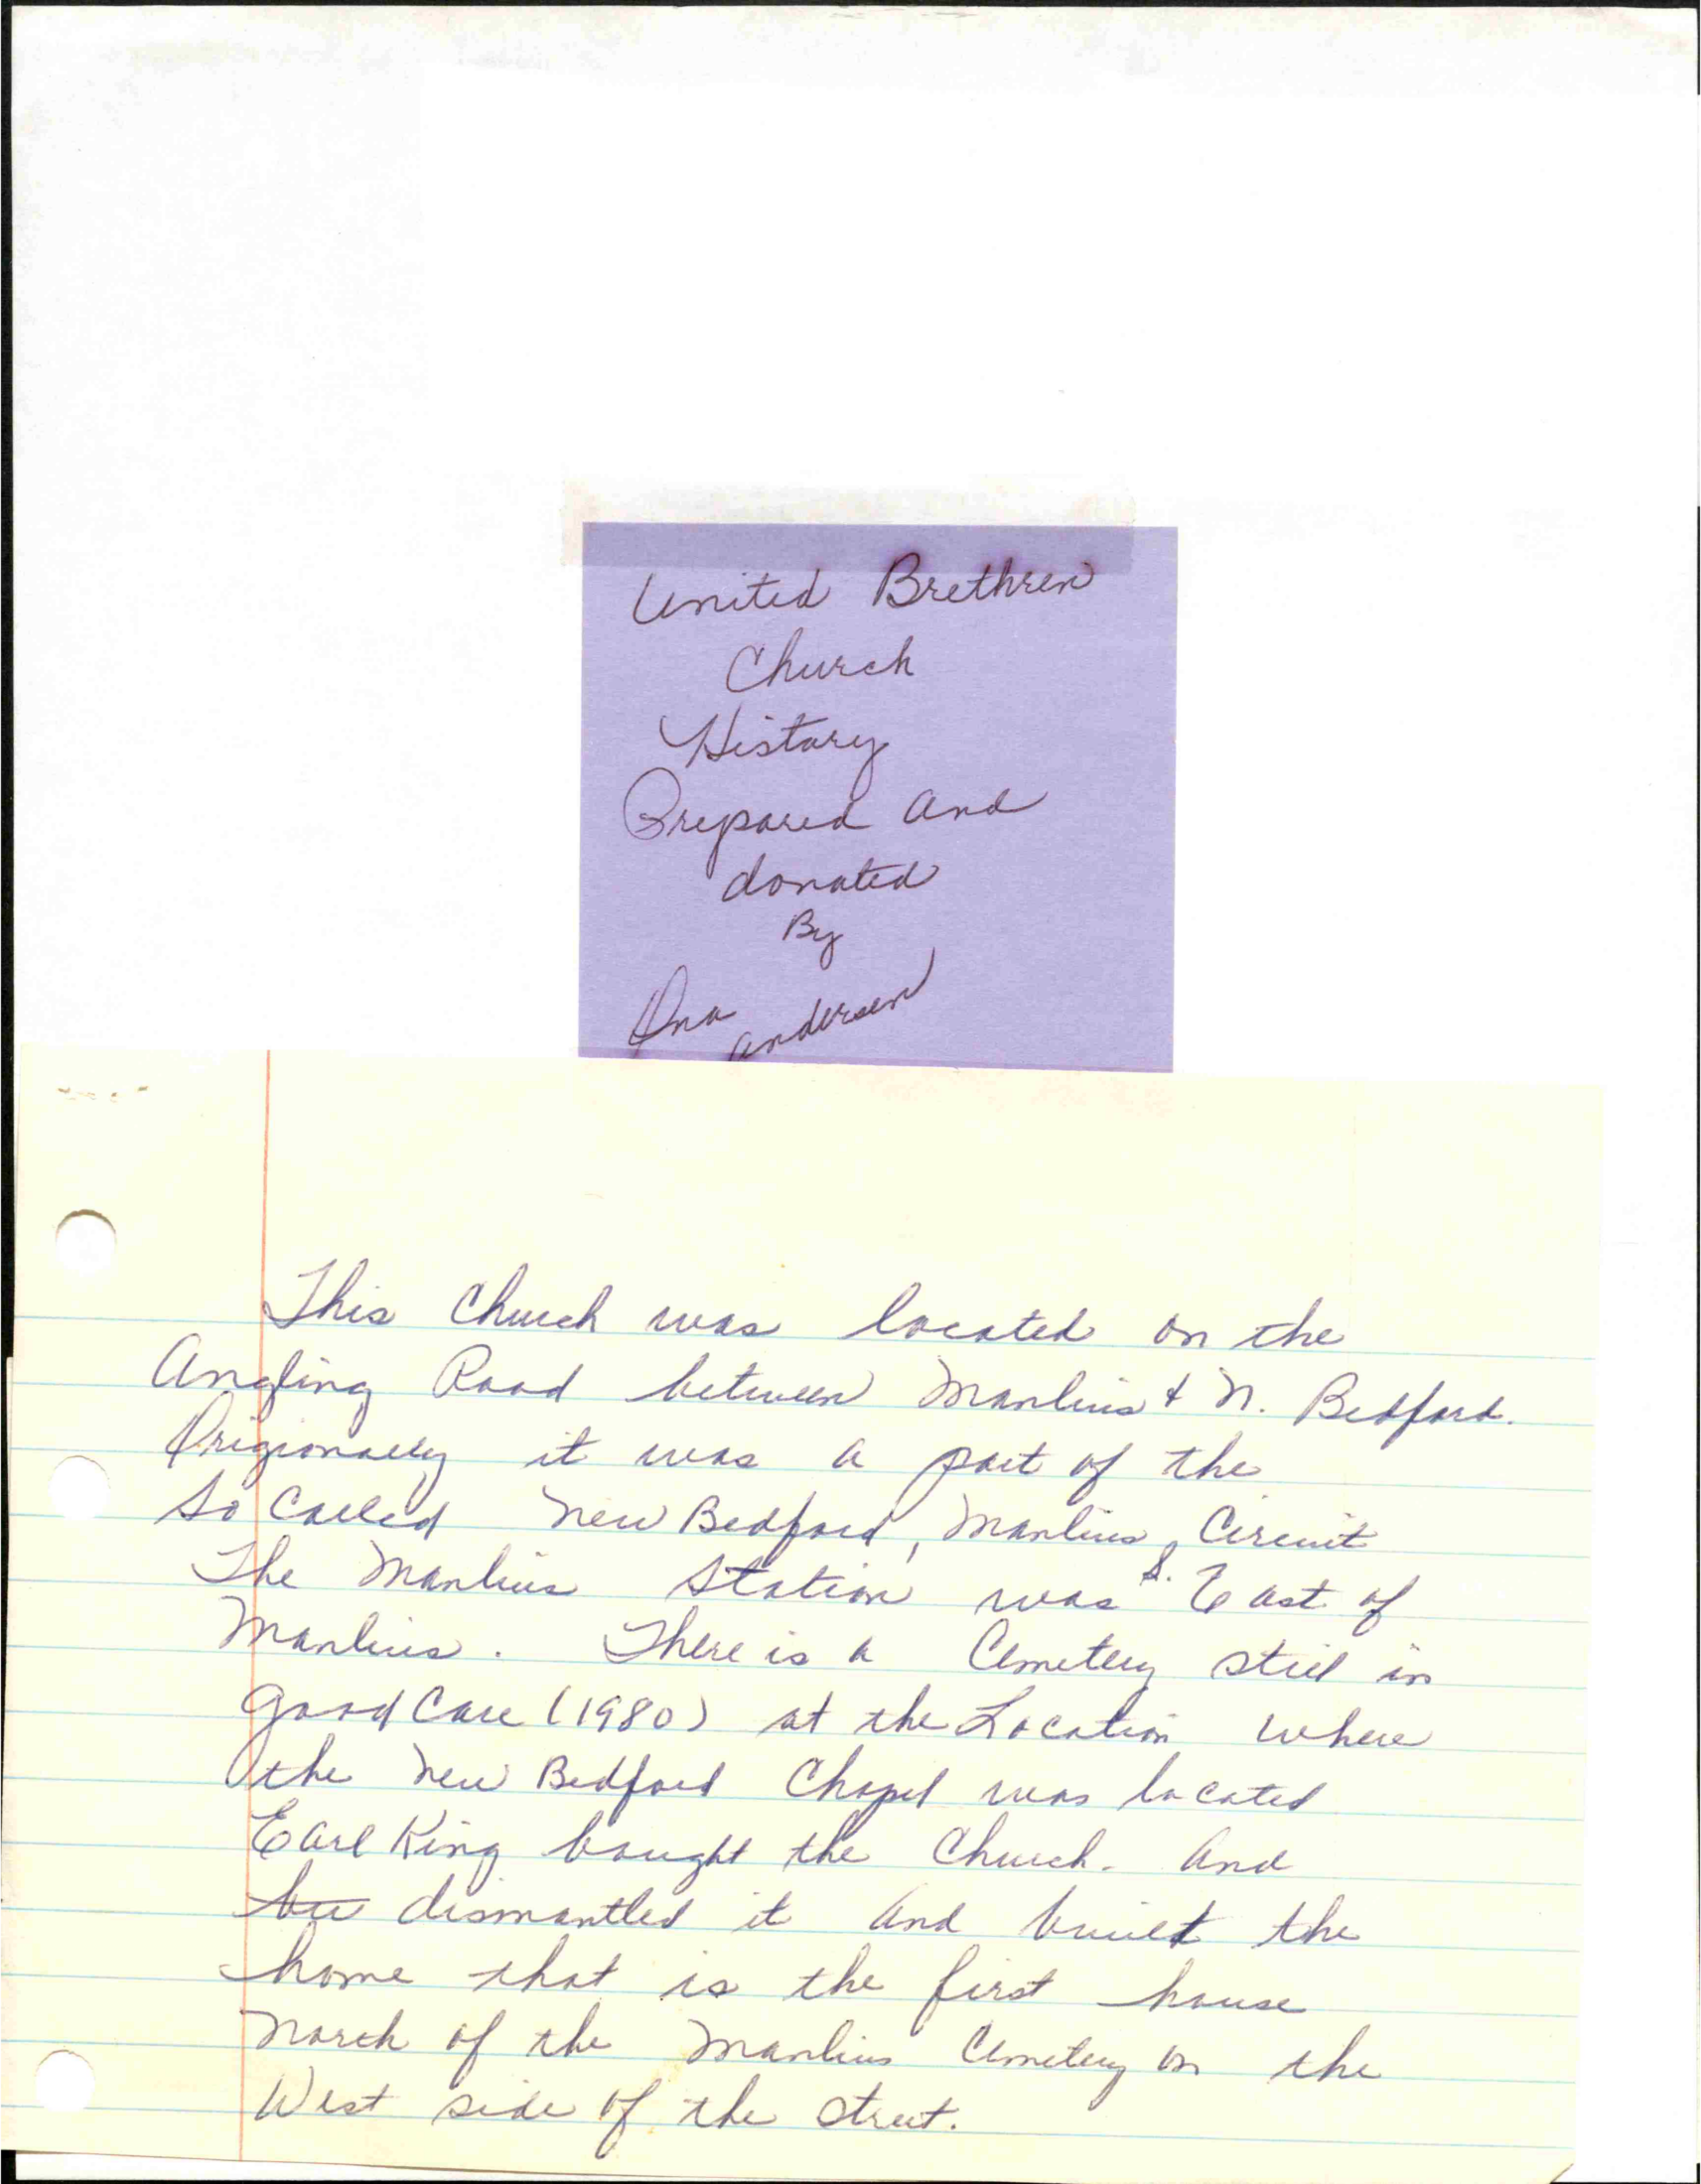 United Brethren
Church
History
Prepared and
donated
By
Ona
Andersen
This Church was located on the
Angling Road between Manlius & N. Bedford.
Origionally it was a part of the
So Called New Bedford, Manlius, Circuit
The Manlius Station was S. East of
Manlius. There is a Cemetery still in
good Care (1980) at the Location where
the New Bedford Chapel was located
Earl King bought the Church. And
dismantled it and built the
home that is the first house
North of the Manlius Cemetery on the
West side of the street.